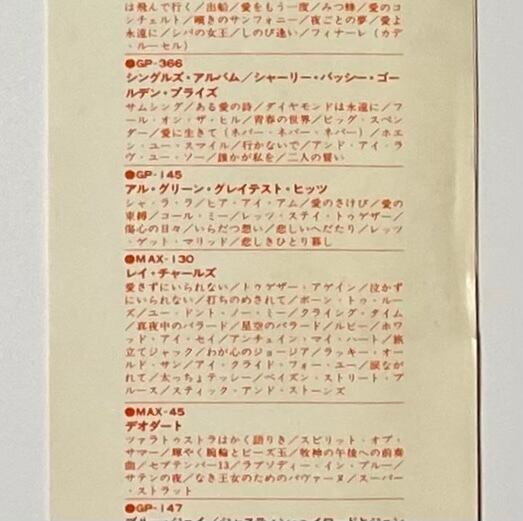 は飛んで行く／出船／愛をもう一度／みつ蜂／愛のコ
ンチェルト／嘆きのサンフォニー／夜ごとの夢／愛よ
永遠に／シバの女王／しのび逢い／フィナーレ（カデ
・ルーセル）
●GP-366
シングルズ・アルバム／シャーリー・バッシー・ゴー
ルデン・プライズ
サムシング／ある愛の詩／ダイヤモンドは永遠に／フ
ール・オン・ザ・ヒル／青春の世界／ビッグ・スペン
ダー／愛に生きて（ネバー・ネバー・ネバー）／ホエ
ン・ユー・スマイル／行かないで／アンド・アイ・ラ
ヴ・ユー・ソー／誰かが私を／二人の誓い
●GP-145
アル・グリーン・グレイテスト・ヒッツ
シャ・ラ・ラ／ヒア・アイ・アム／愛のさけび／愛の
束縛／コール・ミー／レッツ・ステイ・トゥゲザー／
傷心の日々／いらだつ想い／悲しいへだたり／レッツ
・ゲット・マリッド／悲しきひとり暮し
●MAX-130
レイ・チャールズ
愛さずにいられない／トゥゲザー・アゲイン／泣かず
にいられない／打ちのめされて／ボーン・トゥ・ルー
ズ／ユー・ドント・ノー・ミー／クライング・タイム
／真夜中のバラード／星空のバラード／ルビー／ホワ
ッド・アイ・セイ／アンチェイン・マイ・ハート／旅
立てジャック／わが心のジョージア／ラッキー・オー
ルド・サン／アイ・クライド・フォー・ユー／涙なが
れて／太っちょテッシー／ベイズン・ストリート・ブ
ルース／スティック・アンド・ストーンズ
●MAX-45
デオダート
ツァラトゥストラはかく語りき／スピリット・オブ・
サマー／輝やく腕輪とビーズ玉／牧神の午後への前奏
曲／セプテンバー13／ラプソディー・イン・ブルー／
サテンの夜／なき王女のためのパヴァーヌ／スーパー
・ストラット
●GP-147